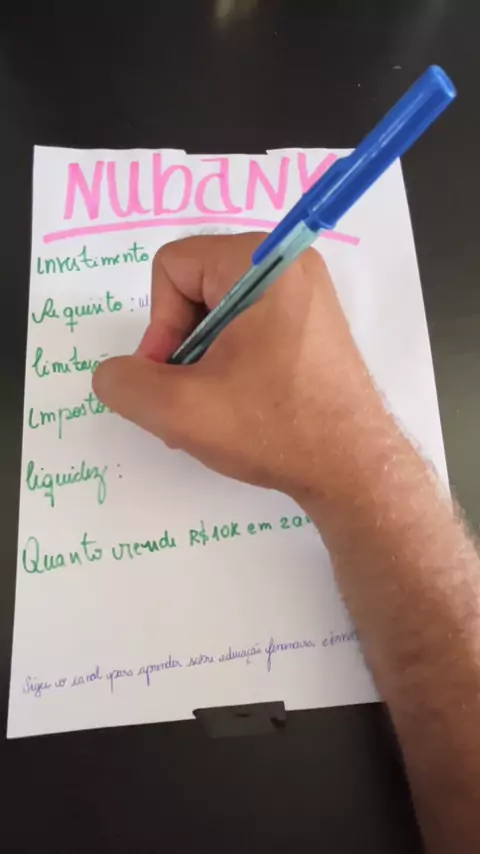 NUbaNK
Investimento
Requisito:
limitaçã
Imposto
liquidez:
Quanto rende R$10K em 20
Siga o canal para aprender sobre educação financeira